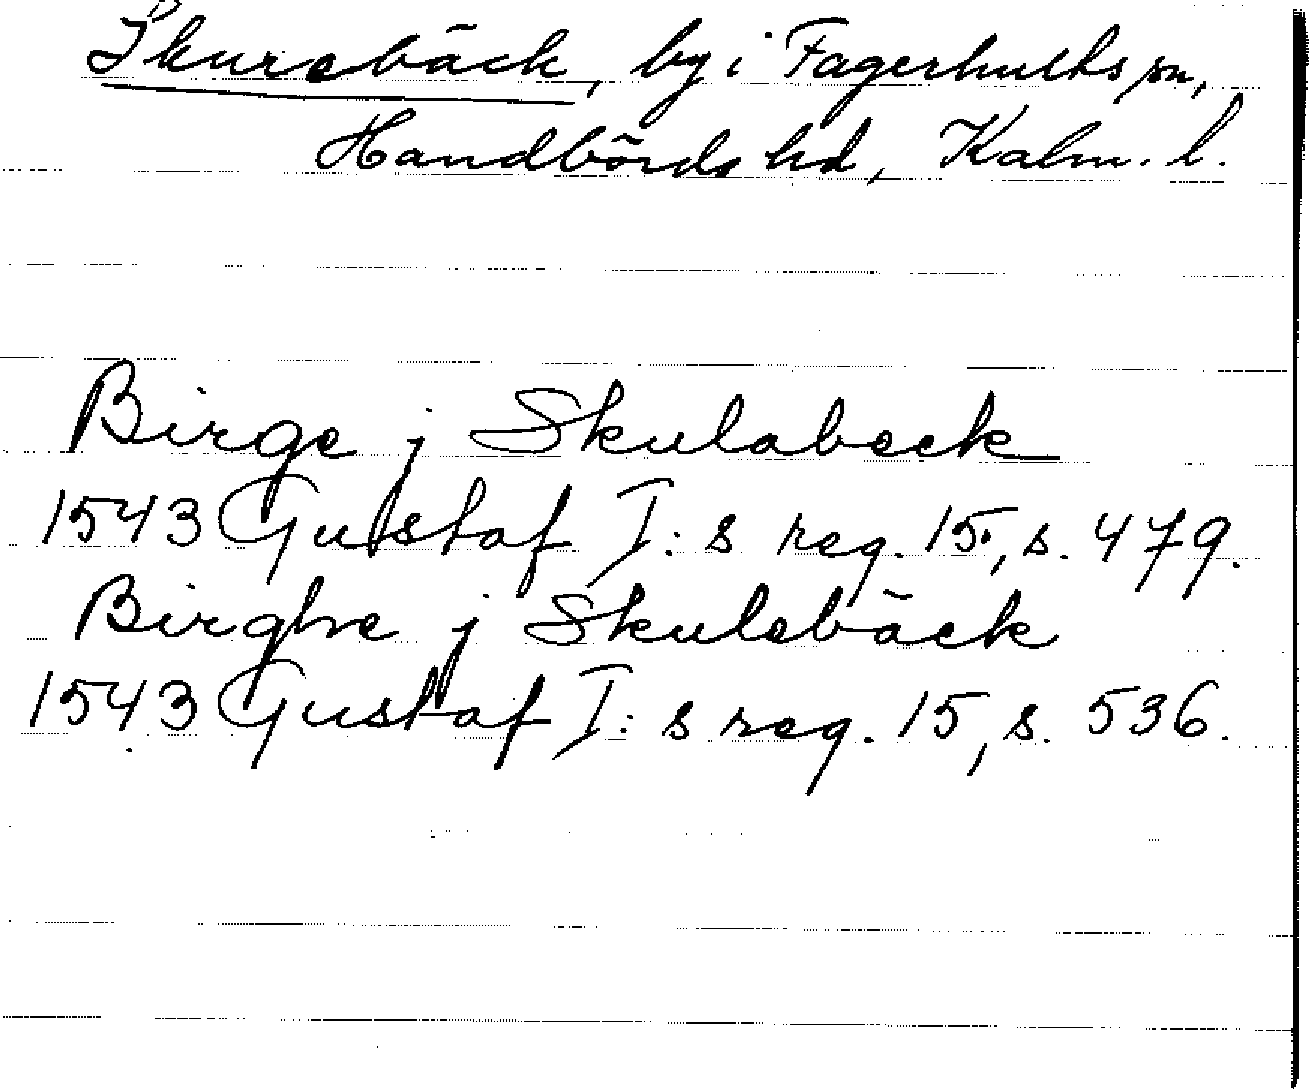 Skurebäck, by i Fagerhults sn,
Handbörds hd, Kalm. l.
Birge j Skulabeck
1543 Gustaf I:s reg. 15, s. 479.
Birghe j Skulebäck
1543 Gustaf I:s reg. 15, s. 536.